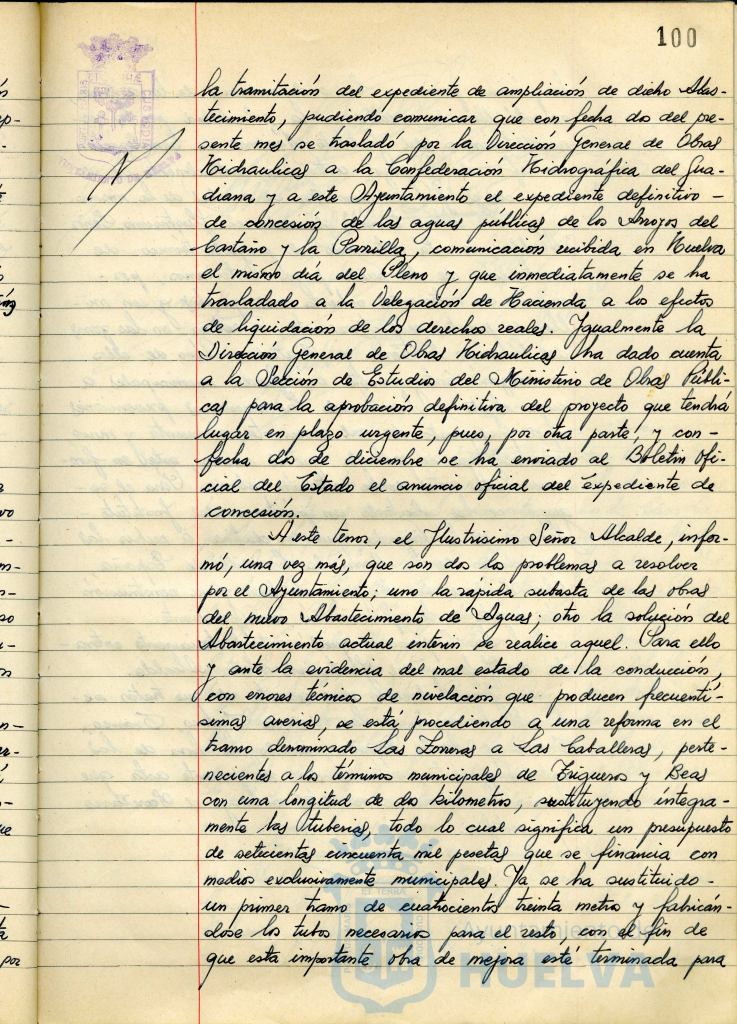 100
la tramitación del expediente de ampliación de dicho Abas-
tecimiento, pudiendo comunicar que con fecha dos del pre-
sente mes se trasladó por la Dirección General de Obras
Hidraulicas a la Confederación Hidrográfica del Gua-
diana y a este Ayuntamiento el expediente definitivo -
de concesión de las aguas públicas de los Arroyos del
Castaño y la Parrilla, comunicación recibida en Huelva
el mismo día del Pleno y que inmediatamente se ha
trasladado a la Delegación de Hacienda a los efectos
de liquidación de los derechos reales. Igualmente la
Dirección General de Obras Hidraulicas ha dado cuenta
a la Sección de Estudios del Ministerio de Obras Públi-
cas para la aprobación definitiva del proyecto que tendrá
lugar en plazo urgente, pues, por otra parte, y con -
fecha dos de diciembre se ha enviado al Boletín Ofi-
cial del Estado el anuncio oficial del expediente de
concesión.
A este tenor, el Ilustrisimo Señor Alcalde, infor-
mó, una vez más, que son dos los problemas a resolver
por el Ayuntamiento; uno la rápida subasta de las obras
del nuevo Abastecimiento de Aguas; otro la solución del
Abastecimiento actual interin se realice aquel. Para ello
y ante la evidencia del mal estado de la conducción,
con errores técnicos de nivelación que producen frecuentí-
simas averias, se está procediendo a una reforma en el
tramo denominado Las Zorreras a Las Caballeras, perte-
necientes a los términos municipales de Trigueros y Beas
con una longitud de dos kilómetros, sustituyendo íntegra-
mente las tuberias, todo lo cual significa un presupuesto
de setecientas cincuenta mil pesetas que se financia con
medios exclusivamente municipales. Ya se ha sustituido -
un primer tramo de cuatrocientos treinta metros y fabricán-
dose los tubos necesarios para el resto, con el fin de
que esta importante obra de mejora esté terminada para
HUELVA